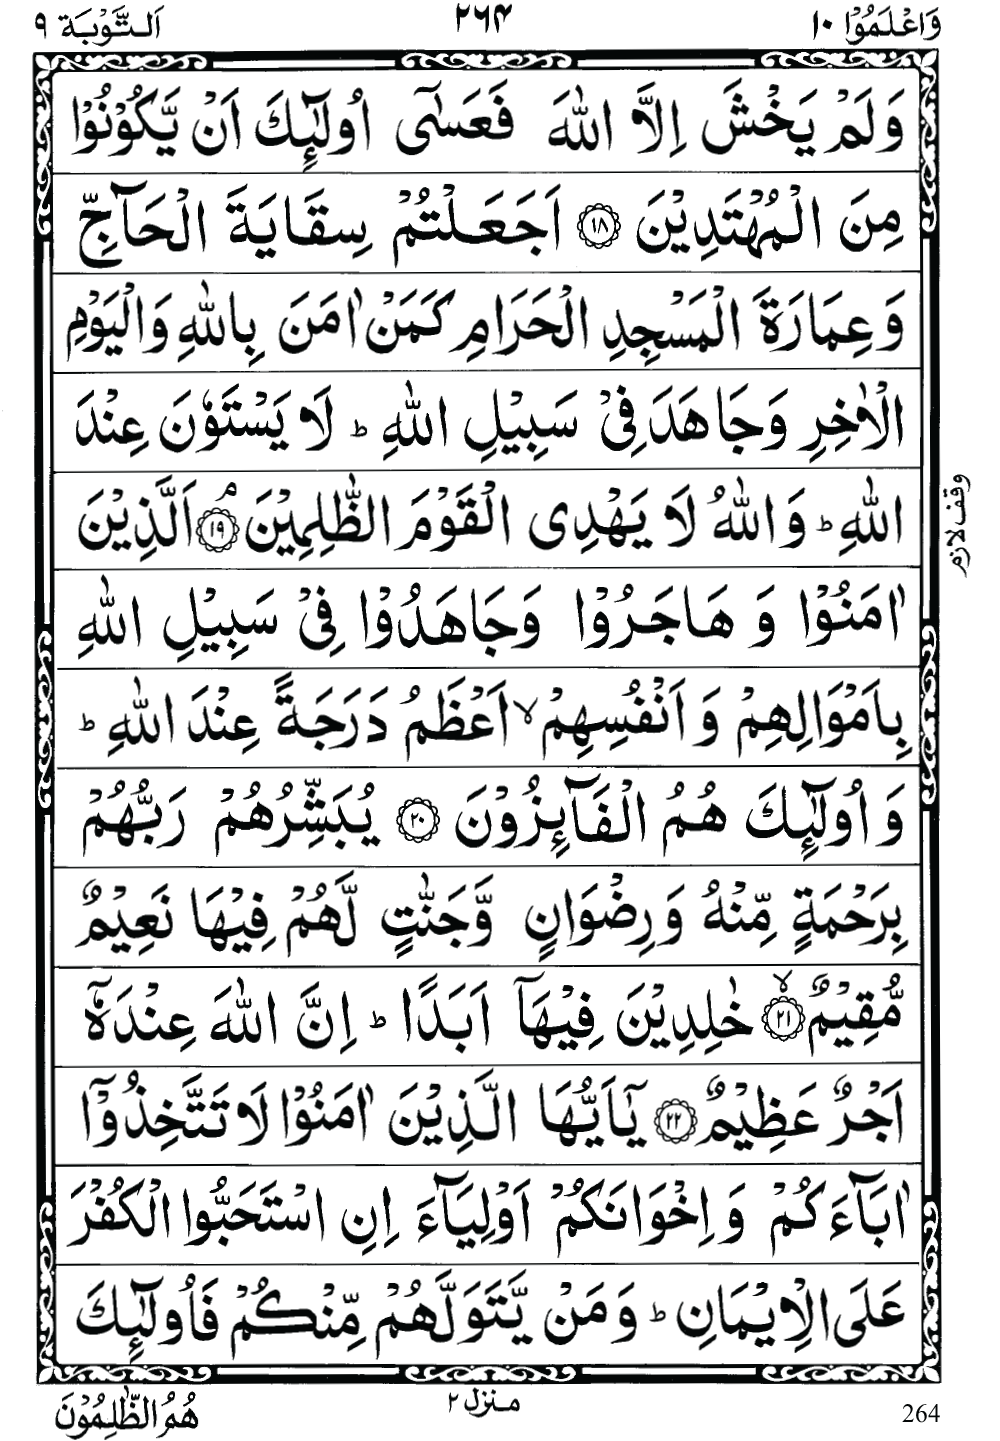 وَاعْلَمُوْا ١٠ ٢٦٤ اَلتَّوْبَة ٩
وَلَمْ يَخْشَ اِلَّا اللّٰهَ فَعَسٰٓى اُولٰٓئِكَ اَنْ يَّكُوْنُوْا
مِنَ الْمُهْتَدِيْنَ ۝١٨ اَجَعَلْتُمْ سِقَايَةَ الْحَآجِّ
وَعِمَارَةَ الْمَسْجِدِ الْحَرَامِ كَمَنْ اٰمَنَ بِاللّٰهِ وَالْيَوْمِ
الْاٰخِرِ وَجَاهَدَ فِيْ سَبِيْلِ اللّٰهِ ؕ لَا يَسْتَوٗنَ عِنْدَ
اللّٰهِ ؕ وَاللّٰهُ لَا يَهْدِى الْقَوْمَ الظّٰلِمِيْنَ ۝١٩ۘ اَلَّذِيْنَ
وقف لازم
اٰمَنُوْا وَ هَاجَرُوْا وَجَاهَدُوْا فِيْ سَبِيْلِ اللّٰهِ
بِاَمْوَالِهِمْ وَ اَنْفُسِهِمْ ۙ اَعْظَمُ دَرَجَةً عِنْدَ اللّٰهِ ؕ
وَ اُولٰٓئِكَ هُمُ الْفَآئِزُوْنَ ۝٢٠ يُبَشِّرُهُمْ رَبُّهُمْ
بِرَحْمَةٍ مِّنْهُ وَ رِضْوَانٍ وَّجَنّٰتٍ لَّهُمْ فِيْهَا نَعِيْمٌ
مُّقِيْمٌ ۝٢١ۙ خٰلِدِيْنَ فِيْهَآ اَبَدًا ؕ اِنَّ اللّٰهَ عِنْدَهٗٓ
اَجْرٌ عَظِيْمٌ ۝٢٢ يٰٓاَيُّهَا الَّذِيْنَ اٰمَنُوْا لَا تَتَّخِذُوْٓا
اٰبَآءَكُمْ وَ اِخْوَانَكُمْ اَوْلِيَآءَ اِنِ اسْتَحَبُّوا الْكُفْرَ
عَلَى الْاِيْمَانِ ؕ وَ مَنْ يَّتَوَلَّهُمْ مِّنْكُمْ فَاُولٰٓئِكَ
هُمُ الظّٰلِمُوْنَ
منزل ٢
264